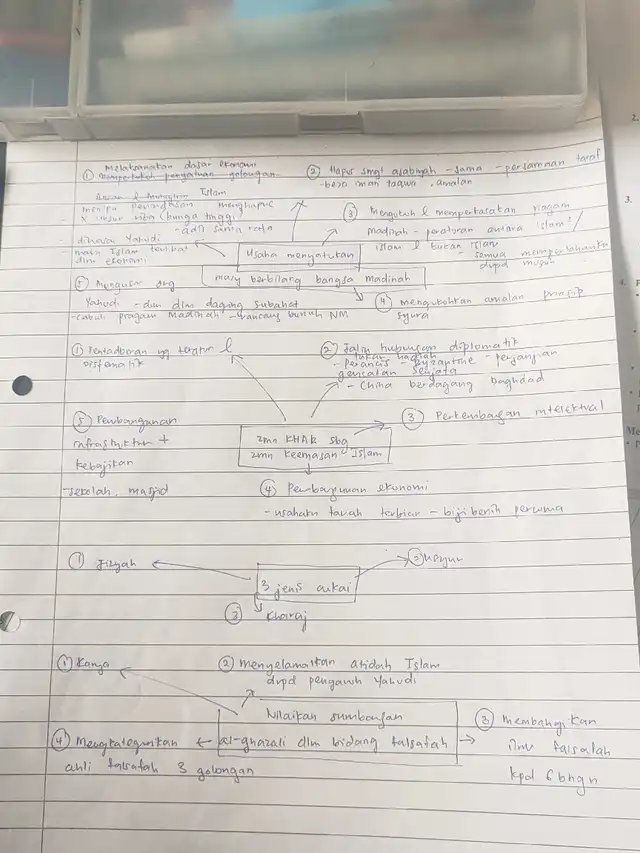 Melaksanakan dasar ekonomi
① Memperkukuh penyatuan golongan
Ansar & Muhajirin Islam
menipu penindasan menghapus
& unsur riba (bunga tinggi)
- adil sama rata
- dikuasai Yahudi
mana Islam terlibat
dlm ekonomi
② Hapus smgt asabiyah - sama - persamaan taraf
- beza iman taqwa, amalan
③ Mengubah & memperkasakan piagam
Madinah - peraturan antara Islam /
Islam & bukan Islam
- semua mempertahankan
drpd musuh
Usaha menyatukan
masy berbilang bangsa madinah
⑤ Mengusir org
Yahudi - dlm daging subahat
- cabuli piagam Madinah - rancang bunuh NM
④ mengukuhkan amalan prinsip
syura
① Pentadbiran yg teratur &
sistematik
② Jalin hubungan diplomatik
tukar hadiah
- Perancis - Byzantine - perjanjian
gencatan senjata
- China berdagang baghdad
③ Perkembangan intelektual
zmn KHAR sbg
zmn keemasan Islam
⑤ Pembangunan
infrastruktur +
kebajikan
- sekolah, masjid
④ Pembangunan ekonomi
- usahakn tanah terbiar - biji benih percuma
① Jizyah
② Usyur
3 jenis cukai
③ Kharaj
① Karya
② Menyelamatkan akidah Islam
drpd pengaruh Yahudi
Nilaikan sumbangan
al-ghazali dlm bidang falsafah
③ membahagikan
ilmu falsafah
kpd 6 bhgn
④ Mengkategorikan
ahli falsafah 3 golongan
2.
3.
4.